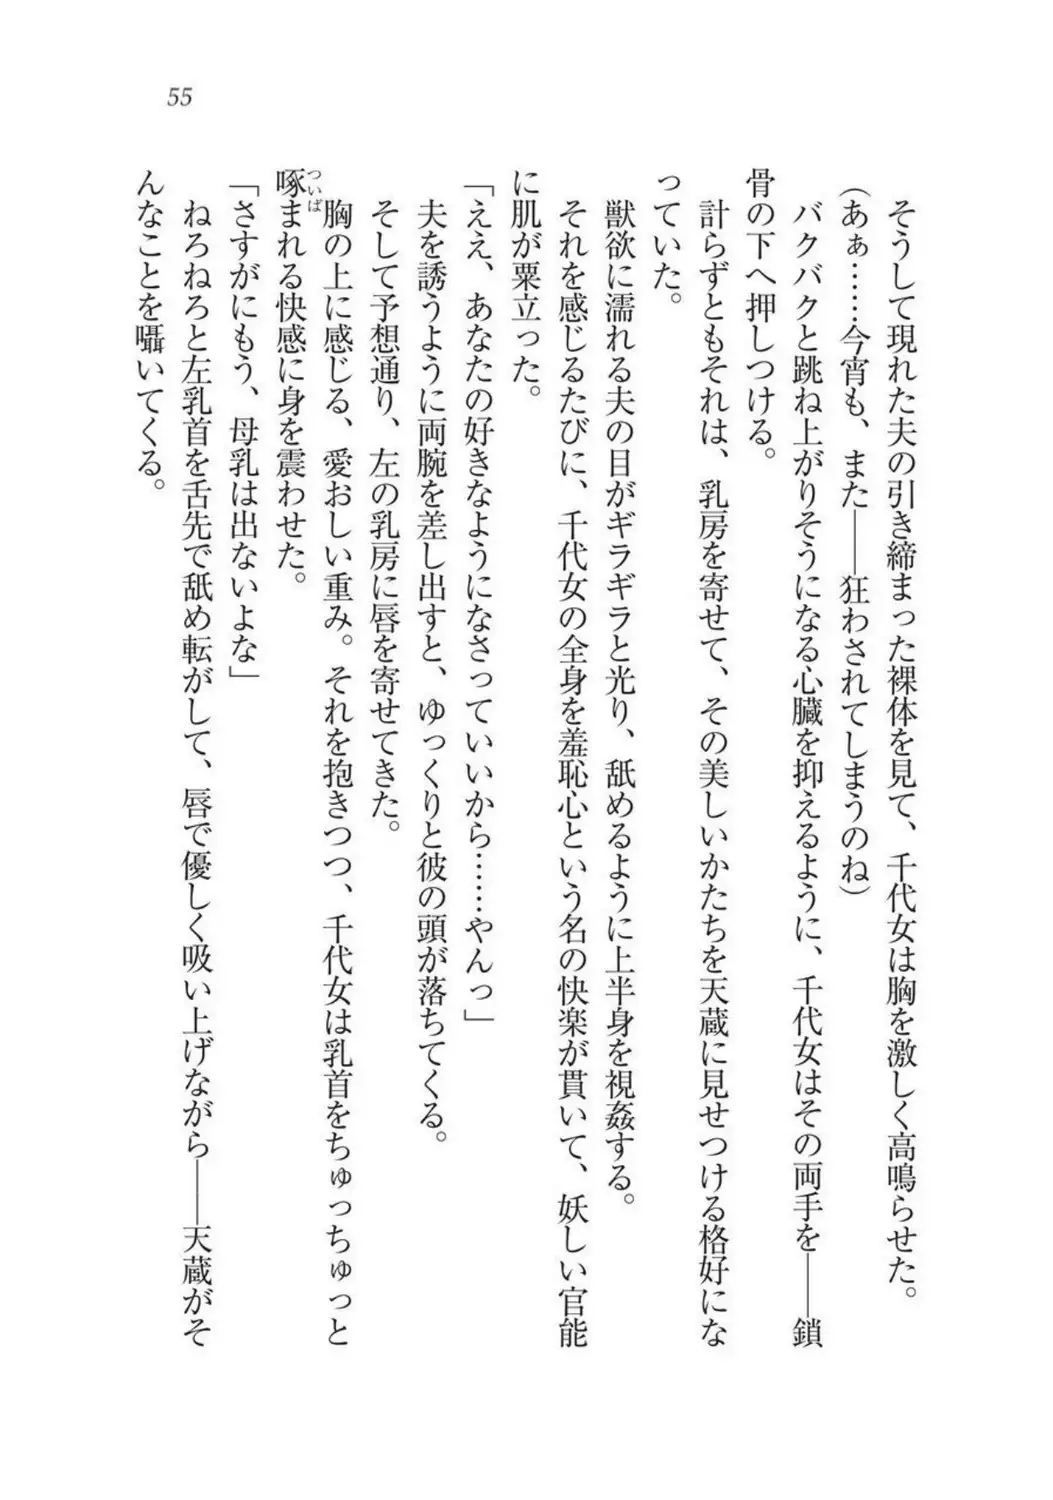 55
そうして現れた夫の引き締まった裸体を見て、千代女は胸を激しく高鳴らせた。
(あぁ……今宵も、また――狂わされてしまうのね)
バクバクと跳ね上がりそうになる心臓を抑えるように、千代女はその両手を――鎖
骨の下へ押しつける。
計らずともそれは、乳房を寄せて、その美しいかたちを天蔵に見せつける格好にな
っていた。
獣欲に濡れる夫の目がギラギラと光り、舐めるように上半身を視姦する。
それを感じるたびに、千代女の全身を羞恥心という名の快楽が貫いて、妖しい官能
に肌が粟立った。
「ええ、あなたの好きなようになさっていいから……やんっ」
夫を誘うように両腕を差し出すと、ゆっくりと彼の頭が落ちてくる。
そして予想通り、左の乳房に唇を寄せてきた。
胸の上に感じる、愛おしい重み。それを抱きつつ、千代女は乳首をちゅっちゅっと
啄まれる快感に身を震わせた。
ついば
「さすがにもう、母乳は出ないよな」
ねろねろと左乳首を舌先で舐め転がして、唇で優しく吸い上げながら――天蔵がそ
んなことを囁いてくる。